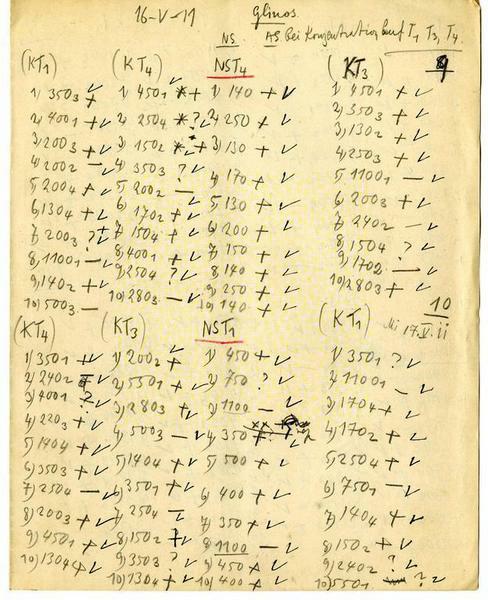 16-V-11 Glinos.
NS. AS bei Konzentration auf T1 T3, T4
(KT1) (KT4) NST4 (KT3) 9
1) 3503 + 1) 4501 *+✓ 1) 140 +✓ 1) 4501 +✓
2) 4001 +✓ 2) 2504 *?✓ 2) 250 +✓ 2) 3503 +✓
3) 2003 +✓ 3) 1502 *+ 3) 130 +✓ 3) 1302 +✓
4) 2002 –✓ 4) 3503 ?✓ 4) 170 +✓ 4) 2503 +✓
5) 2004 +✓ 5) 2002 – 5) 130 +✓ 5) 11001 –✓
6) 1304 +✓ 6) 1702 +✓ 6) 200 +✓ 6) 2003 +✓
7) 2003 ?✓ 7) 1504 +✓ 7) 150 +✓ 7) 2402 –✓
8) 11001 –✓ 8) 4001 +✓ 8) 140 +✓ 8) 1504 ?✓
9) 1402 +✓ 9) 2504 ?✓ 9) 250 +✓ 9) 1702 –✓
10) 5003 – 10) 2803 –✓ 10) 140 +✓ 10) 2803 +✓
10
(KT4) (KT3) NST1 (KT1) Mi 17.V.11
1) 3501 +✓ 1) 2002 +✓ 1) 450 +✓ 1) 3501 ?✓
2) 2402 ✓ 2) 5501 +✓ 2) 750 ? 2) 11001 –
3) 4001 ? 3) 2803 +✓ 3) 1100 –✓ 3) 1704 +✓
4) 2203 +✓ 4) 5003 –✓ 4) 350 4) 1702 +✓
5) 1404 +✓ 5) 1404 +✓ 5) 500 +✓ 5) 2504 +✓
6) 3503 +✓ 6) 3501 +✓ 6) 400 +✓ 6) 7501 –✓
7) 2504 –✓ 7) 2504 –✓ 7) 350 +✓ 7) 1404 +✓
8) 2003 +✓ 8) 1502 ?✓ 8) 1100 –✓ 8) 1502 +✓
9) 4501 +✓ 9) 3503 ?✓ 9) 450 +✓ 9) 2402 ?✓
10) 1304 +✓ 10) 1304 +✓ 10) 400 +✓ 10) 5501 ?✓